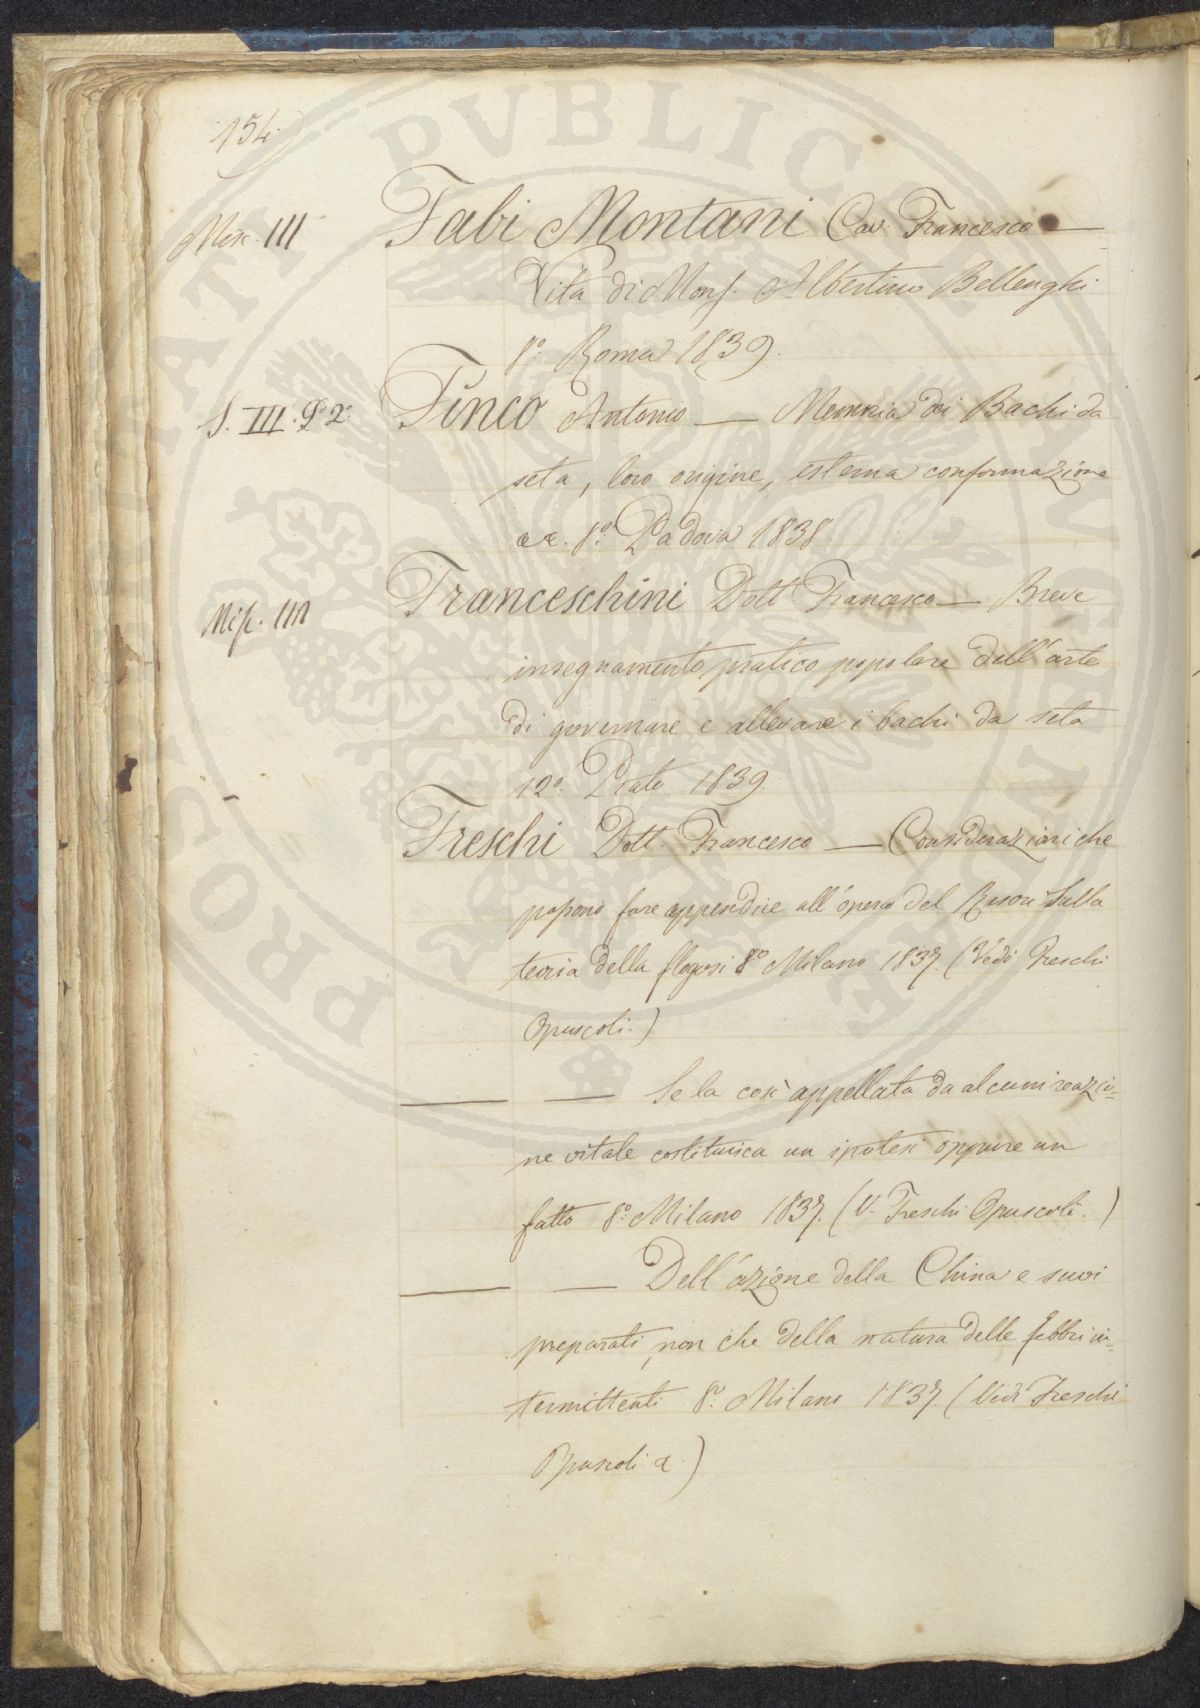 154.
Misc. III
Fabi Montani Cav. Francesco —
Vita di Mons. Albertino Bellenghi
8.º Roma 1839.
S. III. Pº 2º
Finco Antonio — Memoria dei Bachi da
seta, loro origine, esterna conformazione
ec. 8.º Padova 1838.
Misc. III
Franceschini Dott. Francesco — Breve
insegnamento pratico popolare dell'arte
di governare e allevare i bachi da seta
12º. Prato 1839.
Freschi Dott. Francesco — Considerazioni che
possono fare appendice all'opera del Rasori sulla
teoria della flogosi 8º Milano 1837. (Vedi Freschi
Opuscoli.)
— — Se la così appellata da alcuni reazio=
ne vitale costituisca un ipotesi oppure un
fatto 8.º Milano 1837. (V. Freschi Opuscoli.)
— — Dell'azione della China e suoi
preparati, non che della natura delle febbri in=
termittenti 8.º Milano 1837. (Vedi Freschi
Opuscoli a.)
PROSPERITATI PVBLICAE AVGENDAE